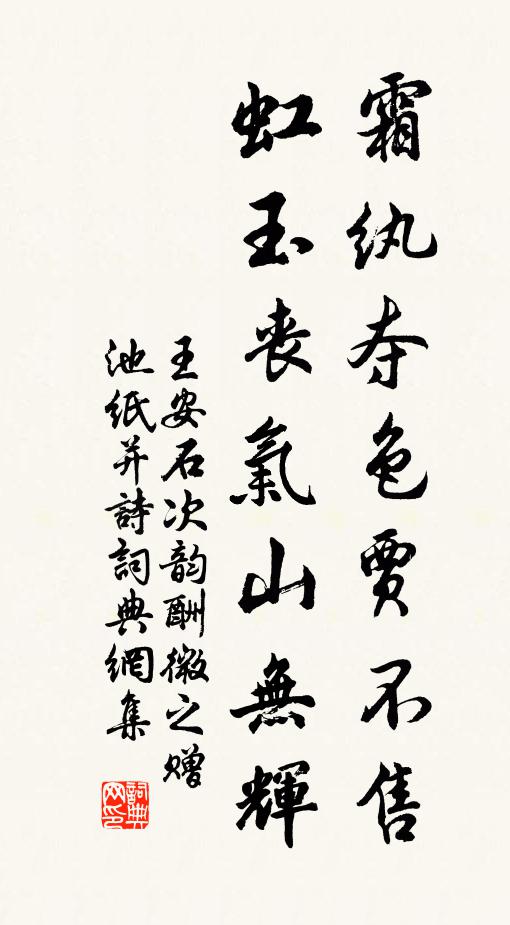 霜纨夺色贾不售
虹玉丧氣山無輝
王安石次韵酬微之赠
池纸并詩詞典網集
詞典网印